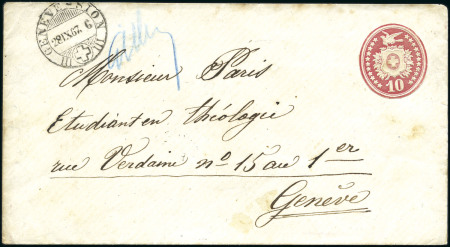 GENÈVE
28 IX 67 6
10
Monsieur Paris
Etudiant en théologie
rue Verdaine nº 15 au 1er
Genève